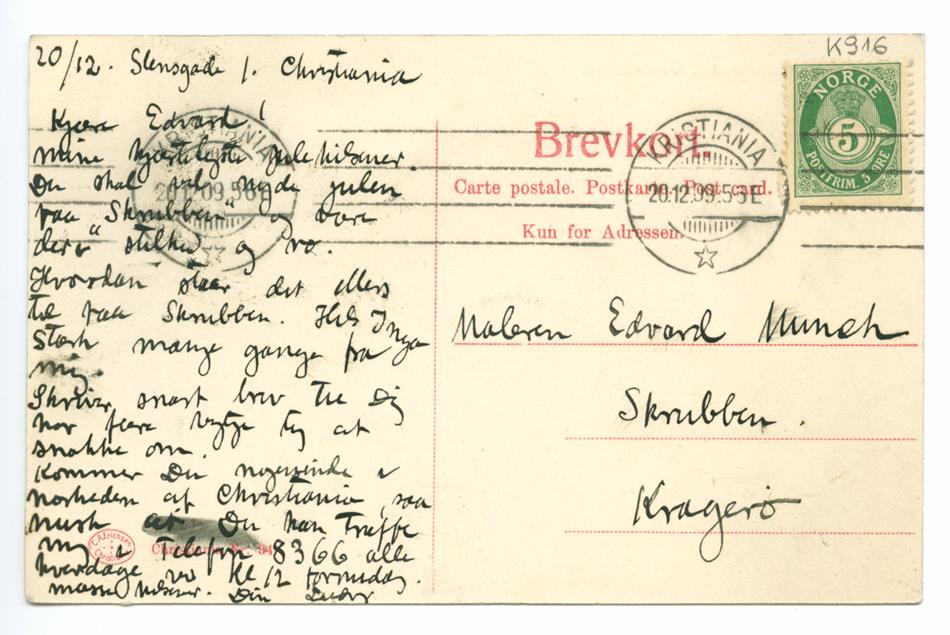 20/12. Stensgade 1. Christiania
Kjære Edvard!
mine hjerteligste julehilsner.
Du skal vel nyde julen
paa "Skrubben" og være
der i stilhed og ro.
Hvordan staar det ellers
til paa Skrubben. Hils Inga
Stærk mange gange fra
mig.
Skriver snart brev til Dig
har flere vigtige ting at
snakke om.
Kommer Du nogensinde i
nærheden af Christiania, saa
husk at Du kan træffe
mig i Telefon 8366 alle
hverdage ved Kl 12 formiddag.
masse hilsner. Din Ludvig
K916
NORGE
5
POSTFRIM. 5 ØRE
KRISTIANIA
20.12.09.5-E
KRISTIANIA
20.12.09.5-E
Brevkort.
Carte postale. Postkarte. Post card.
Kun for Adressen.
Maleren Edvard Munch
Skrubben.
Kragerø
Christiania Nr. 34